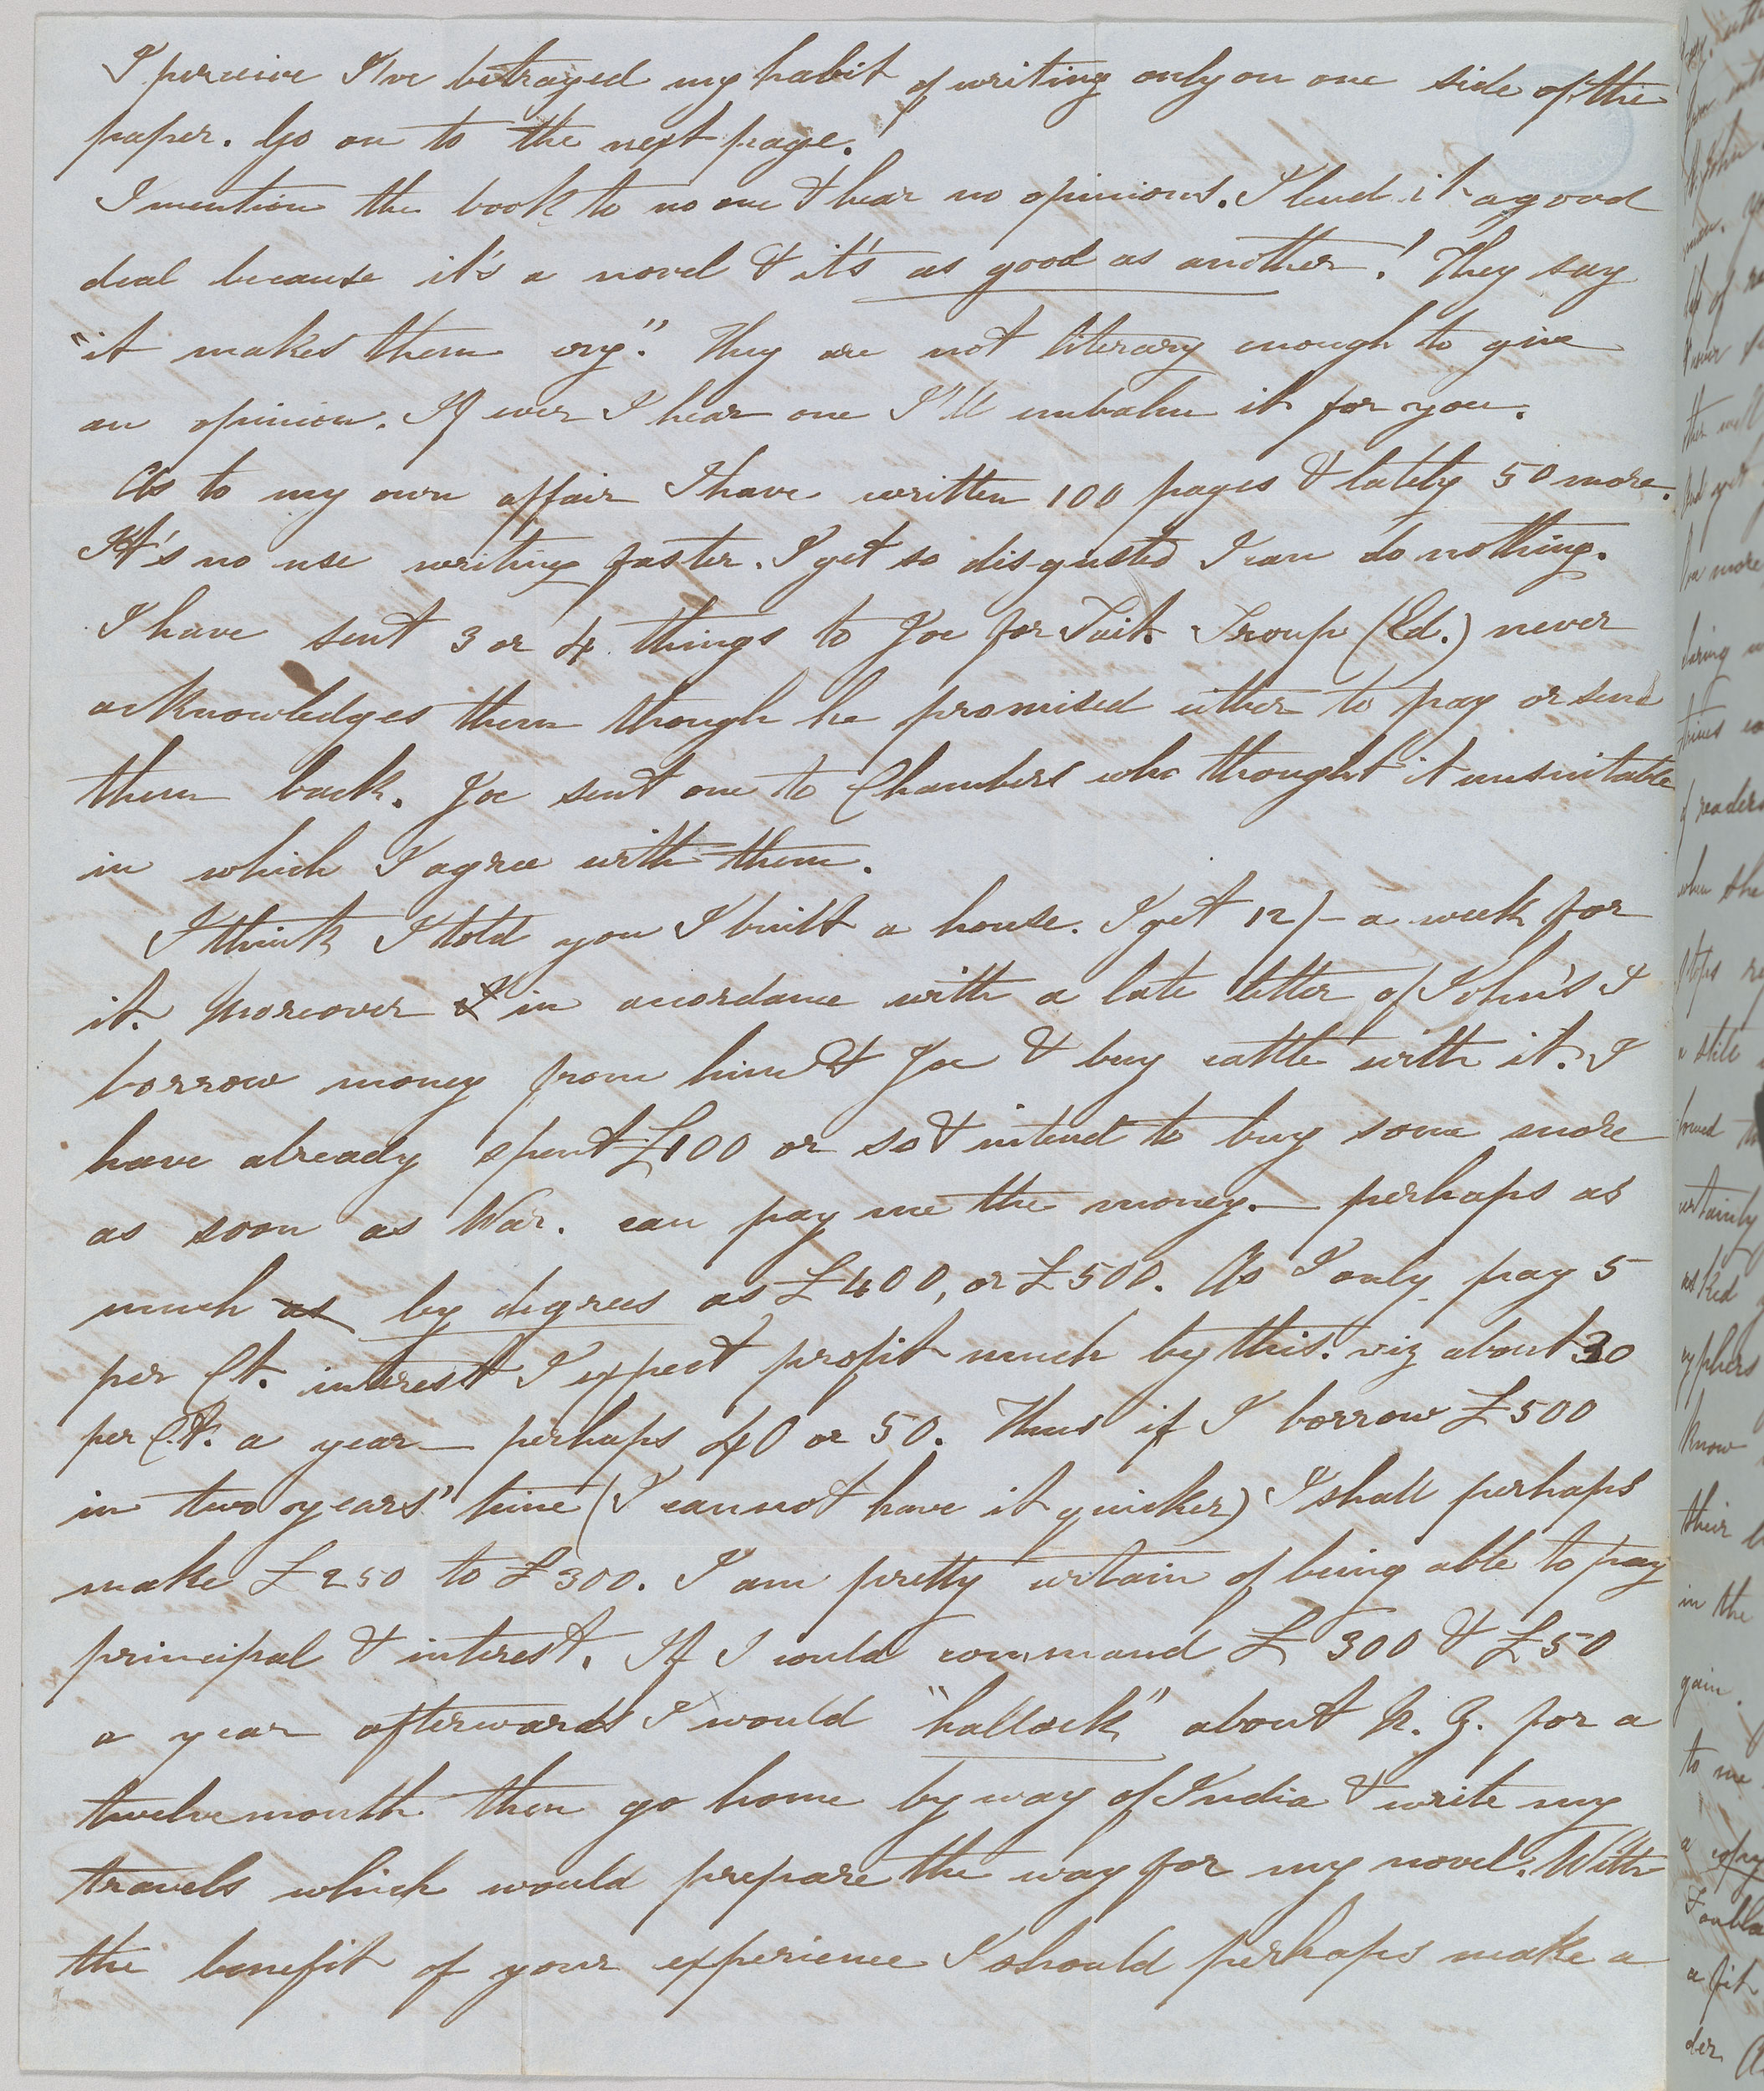 I perceive I've betrayed my habit of writing only on one side of the
paper. Go on to the next page.
I mention the book to no one & hear no opinions. I lend it a good
deal because it's a novel & it's as good as another! They say
"it makes them cry". They are not literary enough to give
an opinion. If ever I hear one I'll embalm it for you.
As to my own affair I have written 100 pages & lately 50 more.
It's no use writing faster. I get so disgusted I can do nothing.
I have sent 3 or 4 things to Joe for Tait. Troup (Ed.) never
acknowledges them though he promised either to pay or send
them back. Joe sent one to Chambers who thought it unsuitable
in which I agree with them.
I think I told you I built a house. I get 12/- a week for
it. Moreover in accordance with a late letter of John's I
borrow money from him & Joe & buy cattle with it. I
have already spent £100 or so & intend to buy some more
as soon as War. can pay me the money. — perhaps as
much as by degrees as £400, or £500. As I only pay 5
per Ct. interest I expect profit much by this. viz about 30
per Ct. a year — perhaps 40 or 50. Thus if I borrow £500
in two years' time (I cannot have it quicker) I shall perhaps
make £250 to £300. I am pretty certain of being able to pay
principal & interest. If I could command £300 & £50
a year afterwards I would "hallack" about N. Z. for a
twelvemonth then go home by way of India & write my
travels which would prepare the way for my novel. With
the benefit of your experience I should perhaps make a